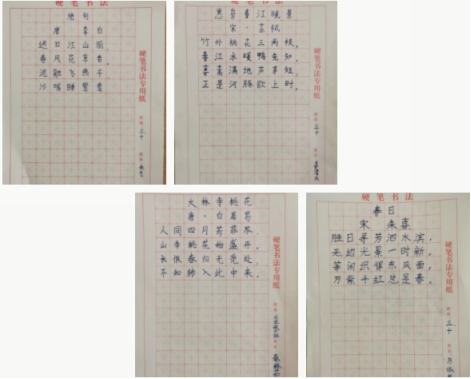 绝句
迟日江山丽
春风花草香
泥融飞燕子
沙暖睡鸳鸯
硬笔书法专用纸
硬笔书法
惠崇春江晚景
竹外桃花三两枝，
春江水暖鸭先知。
蒌蒿满地芦芽短，
正是河豚欲上时。
硬笔书法专用纸
大林寺桃花
唐·白居易
人间四月芳菲尽，
山寺桃花始盛开。
长恨春归无觅处，
不知转入此中来。
硬笔书法专用纸
硬笔书法
春日
宋 朱熹
胜日寻芳泗水滨，
无边光景一时新。
等闲识得东风面，
万紫千红总是春。
硬笔书法专用纸